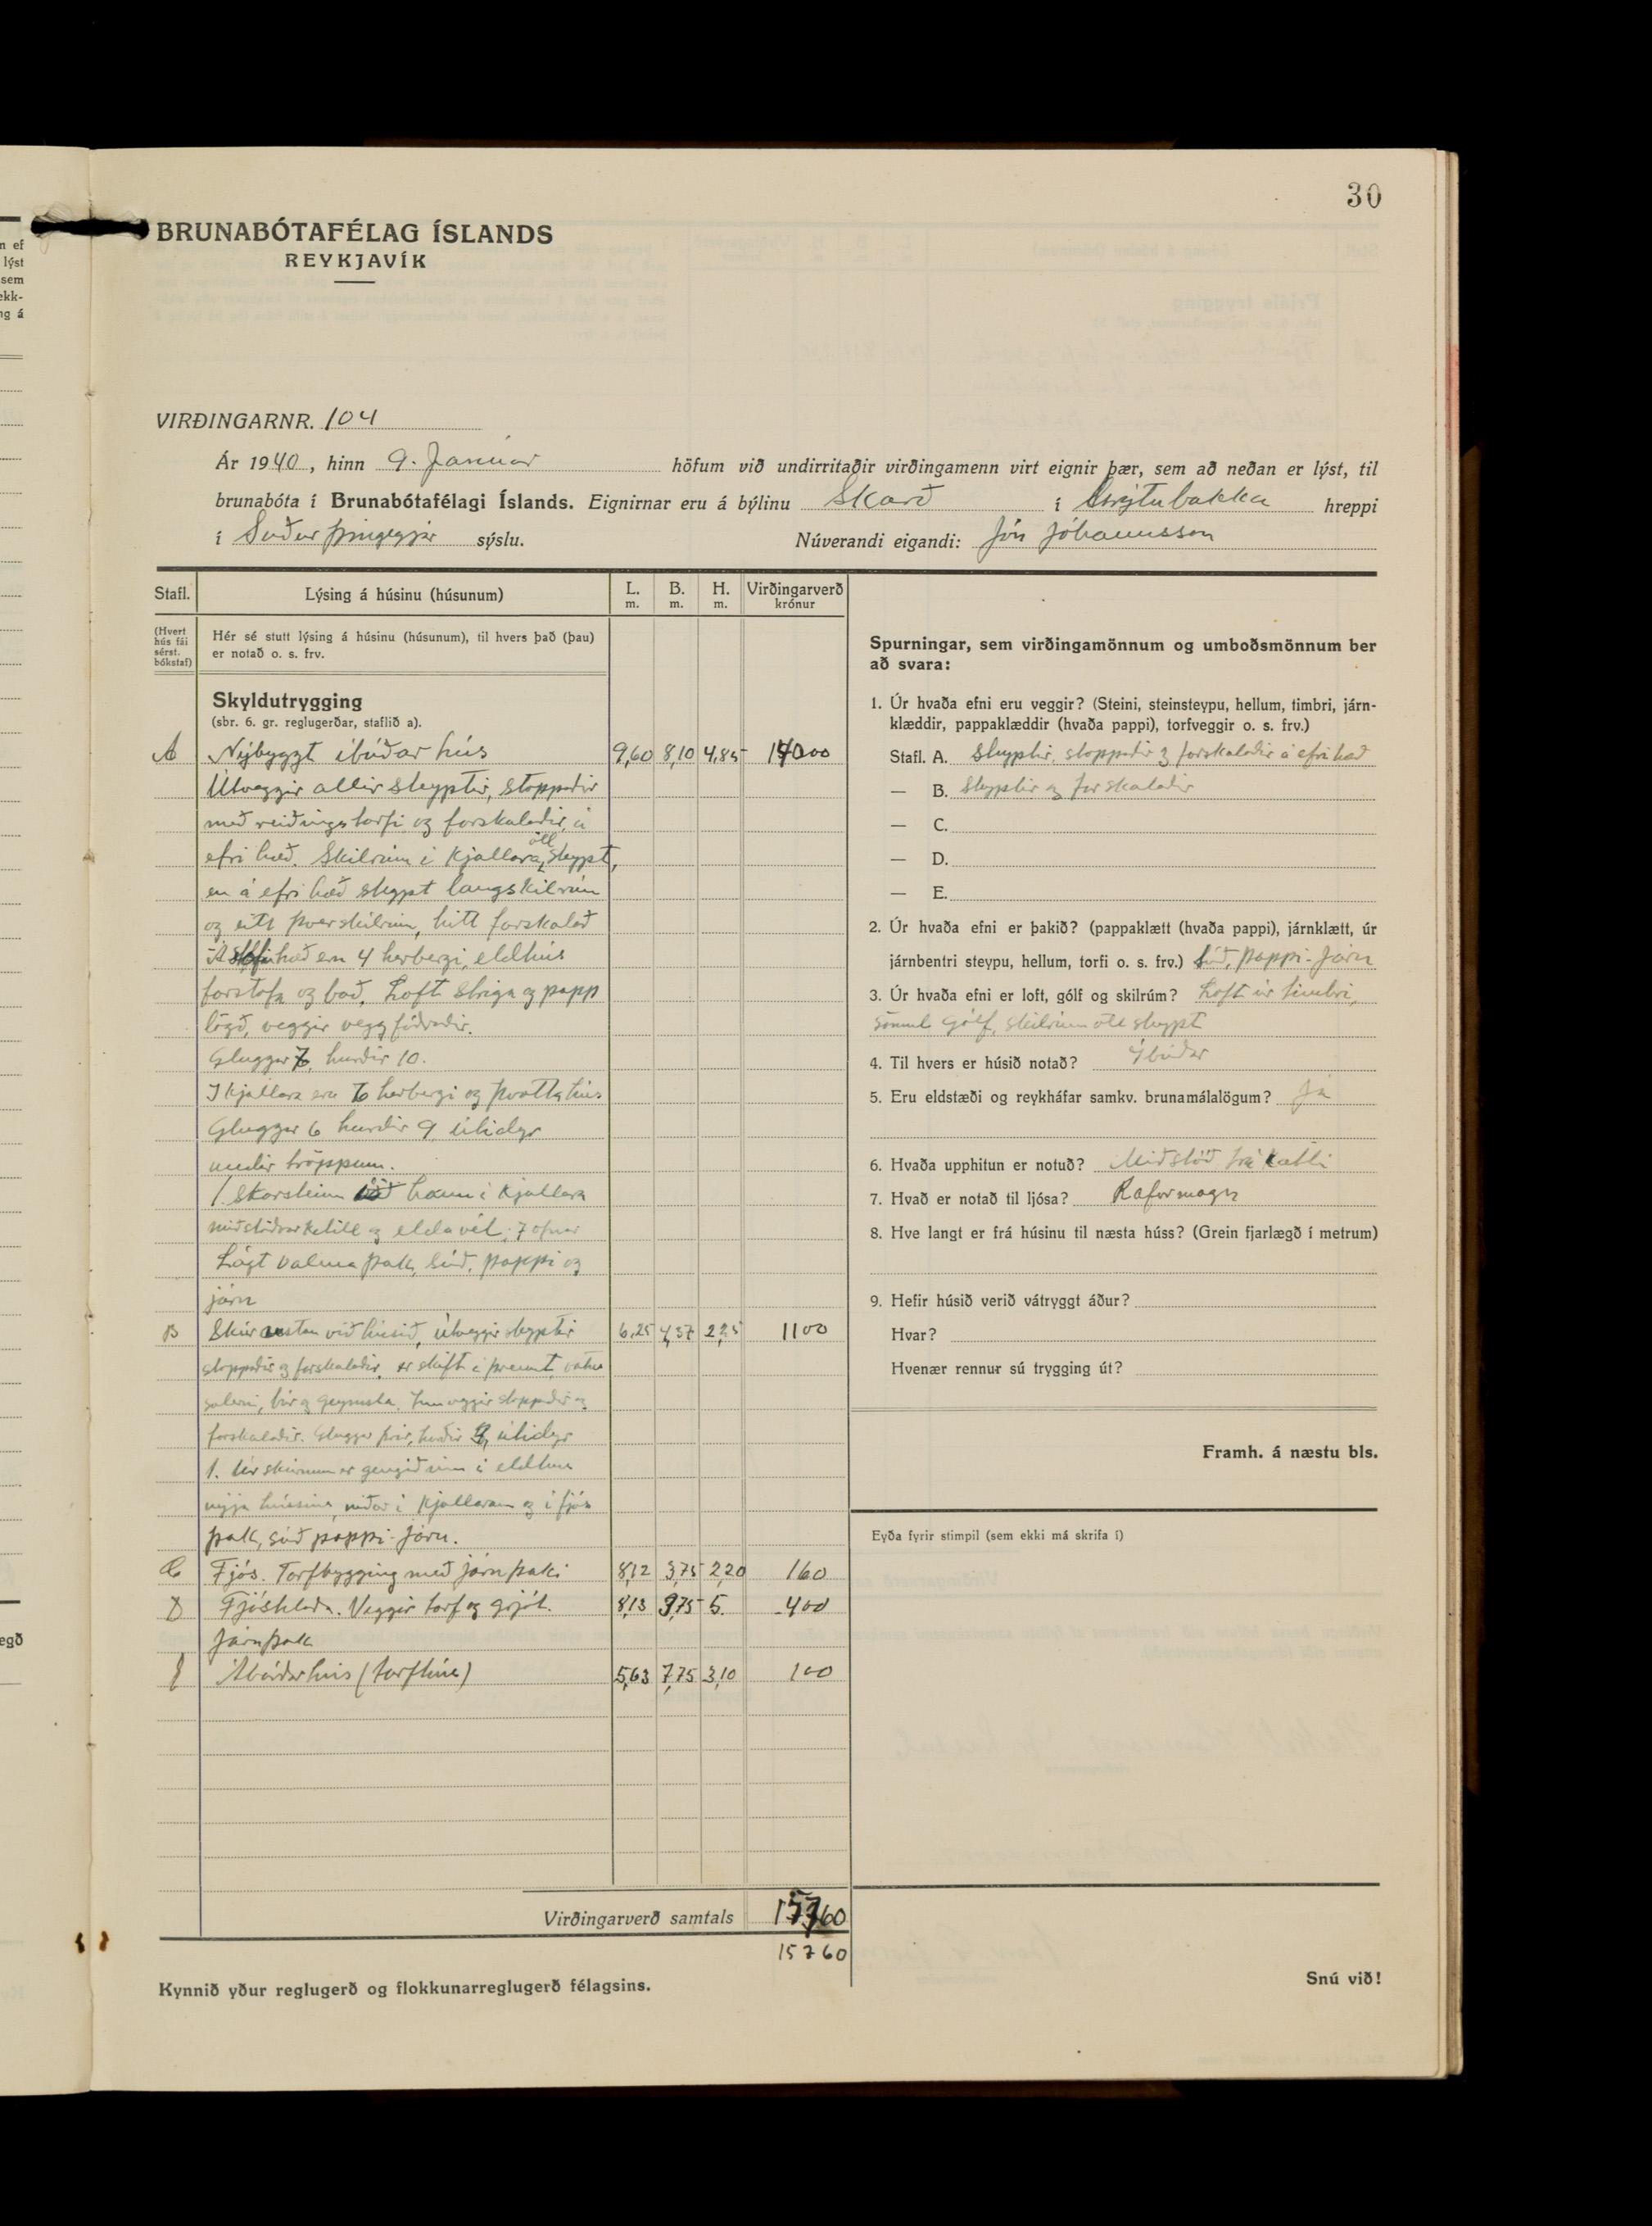 30
BRUNABÓTAFÉLAG ÍSLANDS
REYKJAVÍK
VIRÐINGARNR. 104
Ár 1940, hinn 9. Janúar höfum við undirritaðir virðingamenn virt eignir þær, sem að neðan er lýst, til
brunabóta í Brunabótafélagi Íslands. Eignirnar eru á býlinu Skarð í Grýtubakka hreppi
í Suður þingeyjar sýslu. Núverandi eigandi: Jón Jóhannsson
Stafl. Lýsing á húsinu (húsunum) L. m. B. m. H. m. Virðingarverð krónur
(Hvert hús fái sérst. bókstaf)
Hér sé stutt lýsing á húsinu (húsunum), til hvers það (þau)
er notað o. s. frv.
Skyldutrygging
(sbr. 6. gr. reglugerðar, staflið a).
A Nýbyggt íbúðar hús 9,60 8,10 4,85 14000
Útveggir allir steyptir, stoppaðir
með reiðingstorfi og forskalaðir, á
efri hæð. Skilrúm í kjallara öll steypt,
en á efri hæð steypt langskilrúm
og eitt þverskilrúm, hitt forskalað
Á efrihæð eru 4 herbergi, eldhús
forstofa og bað. Loft striga og papp
lögð, veggir veggfóðraðir.
Gluggar 7, hurðir 10.
Í kjallara eru 6 herbergi og þvottahús
Gluggar 6 hurðir 9 útidyr
undir tröppum.
1. Skorsteinn við hann í kjallara
miðstöðvarketill og eldavél. 7 ofnar
Lágt valma þak, súð, pappi og
járn
B Skúr austan við húsið, útveggir steyptir 6,25 4,37 2,25 1100
stoppaðir og forskalaðir, er skift í þrennt, vatns
salerni, búr og geymsla. Innveggir stoppaðir og
forskalaðir. Gluggar þrír, hurðir útidyr
1. Úr skúrnum er gengið inn í eldhús
nýja hússins, niður í kjallarann og í fjós
þak, súð pappi - járn.
C Fjós. Torfbygging með járnþaki 8,12 3,75 2,20 160
D Fjóshlaða. Veggir torf og grjót. 8,13 9,75 5. 400
Járnþak
E Áburðarhús (torfhús) 5,63 7,75 3,10 100
Virðingarverð samtals 15760
15760
Kynnið yður reglugerð og flokkunarreglugerð félagsins.
Spurningar, sem virðingamönnum og umboðsmönnum ber
að svara:
1. Úr hvaða efni eru veggir? (Steini, steinsteypu, hellum, timbri, járn-
klæddir, pappaklæddir (hvaða pappi), torfveggir o. s. frv.)
Stafl. A. Steyptir, stoppaðir og forskalaðir á efri hæð
— B. Steyptir og forskalaðir
— C.
— D.
— E.
2. Úr hvaða efni er þakið? (pappaklætt (hvaða pappi), járnklætt, úr
járnbentri steypu, hellum, torfi o. s. frv.) Súð, pappi - Járn
3. Úr hvaða efni er loft, gólf og skilrúm? Loft úr timbri,
sömul. Gólf, skilrúm öll steypt
4. Til hvers er húsið notað? Íbúðar
5. Eru eldstæði og reykháfar samkv. brunamálalögum? Já
6. Hvaða upphitun er notuð? Miðstöð frá katli
7. Hvað er notað til ljósa? Raformagn
8. Hve langt er frá húsinu til næsta húss? (Grein fjarlægð í metrum)
9. Hefir húsið verið vátryggt áður?
Hvar?
Hvenær rennur sú trygging út?
Framh. á næstu bls.
Eyða fyrir stimpil (sem ekki má skrifa í)
Snú við!